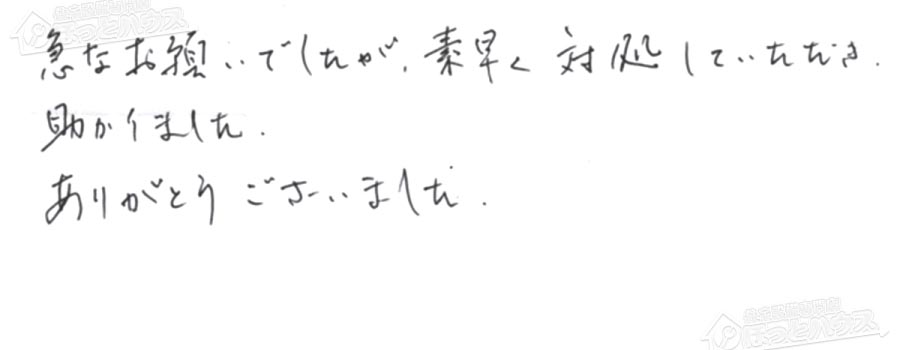 急なお願いでしたが、素早く対処していただき、
助かりました。
ありがとうございました。
ほっとハウス
ほっとハウス